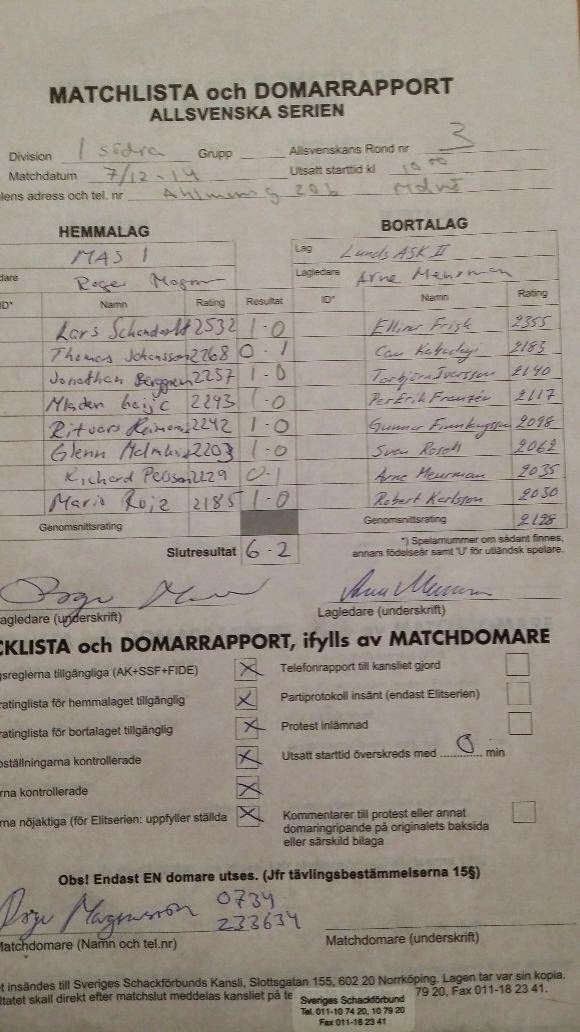 MATCHLISTA och DOMARRAPPORT
ALLSVENSKA SERIEN
Division 1 södra Grupp Allsvenskans Rond nr 3
Matchdatum 7/12-14 Utsatt starttid kl 10 00
lens adress och tel. nr 20b
HEMMALAG BORTALAG
MAS 1 Lag Lunds ASK II
dare Roger Lagledare Arne Meurman
ID* Namn Rating Resultat ID* Namn Rating
Lars 2532 1-0 Ellinor Frisk 2355
Thomas Johansson 2268 0-1 2183
Jonathan 2257 1-0 Torbjörn Iversson 2140
Mladen 2243 1-0 Per Erik Franzén 2117
2242 1-0 Gunnar 2098
Glenn 2203 1-0 Sven 2062
Richard 2229 0-1 Arne Meurman 2035
Mario 2185 1-0 Robert Karlsson 2030
Genomsnittsrating Genomsnittsrating 2128
Slutresultat 6-2 *) Spelarnummer om sådant finnes,
annars födelseår samt 'U' för utländsk spelare.
Arne Meurman
agledare (underskrift) Lagledare (underskrift)
CKLISTA och DOMARRAPPORT, ifylls av MATCHDOMARE
gsreglerna tillgängliga (AK+SSF+FIDE) X Telefonrapport till kansliet gjord
ratinglista för hemmalaget tillgänglig X Partiprotokoll insänt (endast Elitserien)
ratinglista för bortalaget tillgänglig X Protest inlämnad
ställningarna kontrollerade X Utsatt starttid överskreds med 0 min
rna kontrollerade X
rna nöjaktiga (för Elitserien: uppfyller ställda X Kommentarer till protest eller annat
domaringripande på originalets baksida
eller särskild bilaga
Obs! Endast EN domare utses. (Jfr tävlingsbestämmelserna 15§)
Roger Magnusson 0734
233634
Matchdomare (Namn och tel.nr) Matchdomare (underskrift)
t insändes till Sveriges Schackförbunds Kansli, Slottsgatan 155, 602 20 Norrköping. Lagen tar var sin kopia.
ltatet skall direkt efter matchslut meddelas kansliet på te 79 20, Fax 011-18 23 41.
Sveriges Schackförbund
Tel. 011-10 74 20, 10 79 20
Fax 011-18 23 41